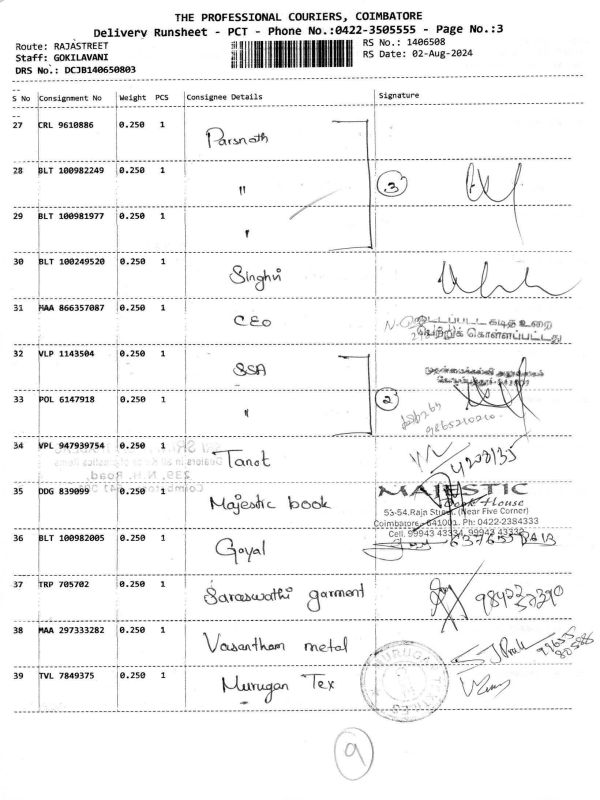 THE PROFESSIONAL COURIERS, COIMBATORE
Delivery Runsheet - PCT - Phone No.:0422-3505555 - Page No.:3
Route: RAJASTREET
RS No.: 1406508
Staff: GOKILAVANI
RS Date: 02-Aug-2024
DRS No.: DCJB140650803
S No Consignment No Weight PCS Consignee Details Signature
27 CRL 9610886 0.250 1 Parsnath
28 BLT 100982249 0.250 1 " 3
29 BLT 100981977 0.250 1 "
30 BLT 100249520 0.250 1 Singhvi
31 MAA 866357087 0.250 1 CEO
கடித உறை
பெற்றுக் கொள்ளப்பட்டது
32 VLP 1143504 0.250 1 SSA
33 POL 6147918 0.250 1 " 2
9865210210
34 VPL 947939754 0.250 1 Tanot
239, N.H. Road,
35 DDG 839099 0.250 1 Majestic book
MAJESTIC
Book House
53-54.Raja Street. (Near Five Corner)
Coimbatore - 641001. Ph: 0422-2384333
Cell. 99943 43334, 99943 43332
36 BLT 100982005 0.250 1 Goyal
37 TRP 705702 0.250 1 Saraswathi garment
38 MAA 297333282 0.250 1 Vasantham metal
39 TVL 7849375 0.250 1 Murugan Tex
9